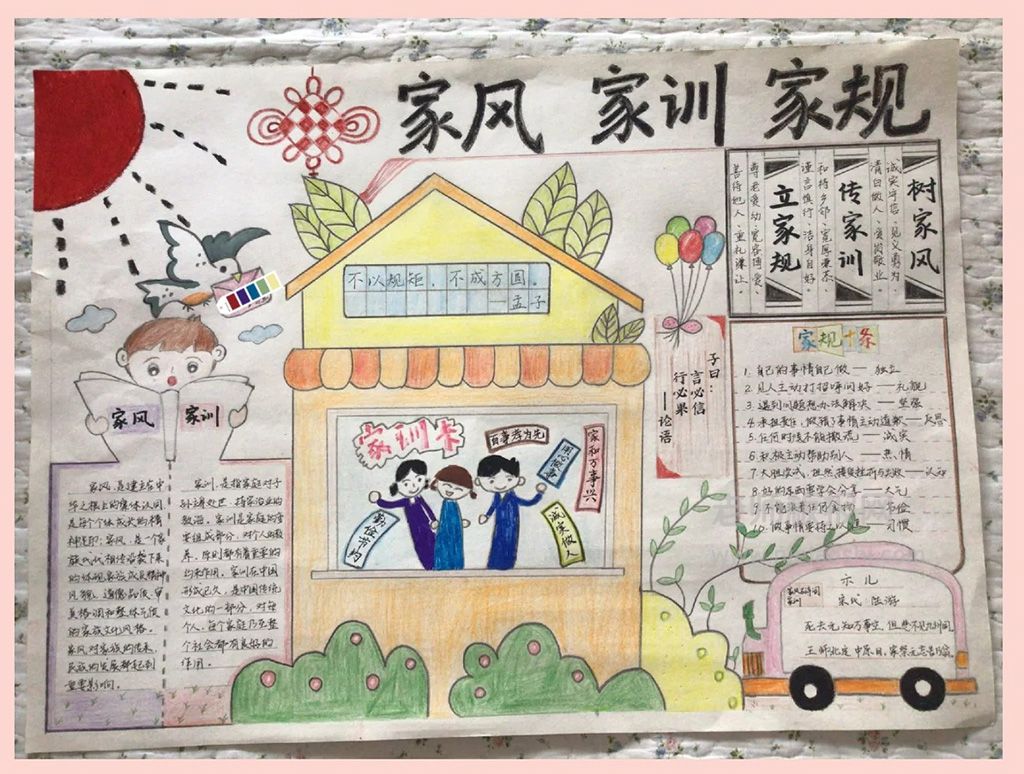 家风 家训 家规
树家风
诚实守信·见义勇为
清白做人·爱岗敬业
传家训
和待乡邻·宽厚兼亲
谨言慎行·洁身自好
立家规
尊老爱幼·宽容博爱
善待他人·重礼谦让
不以规矩，不成方圆。
—孟子
子曰：
言必信
行必果
——论语
家规十条
1. 自己的事情自己做 — 独立
2. 见人主动打招呼问好 — 礼貌
3. 遇到问题想办法解决 — 坚强
4. 承担责任，做错了事情主动道歉 —
5. 任何时候不能撒谎 — 诚实
6. 积极主动帮助别人 — 热情
7. 大胆尝试，坦然接受挫折与失败 — 认知
8. 好的东西要学会分享 — 大气
9. 不能浪费任何食物 节俭
10. 做事情要持之以恒 习惯
家风
家训
家风，是建立在中
华之根上的集体认同
是每个个体成长的精
神足印，家风，是一个家
族代代相传沿袭下来
的体现家族成员精神
风貌、道德品质、审
美格调和整体气质
的家族文化风格。
家风对家族的传承，
民族的发展都起到
重要影响。
家训，是指家庭对子
孙立身处世、持家治业的
教诲。家训是家庭的重
要组成部分，对个人的教
养、原则都有着重要的
约束作用。家训在中国
形成已久，是中国传统
文化的一部分，对每
个人、每个家庭乃至整
个社会都有良好的
作用。
家训卡
百事孝为先
用心做事
家和万事兴
勤俭节约
诚实做人
示儿
宋代 陆游
死去元知万事空，但悲不见九州同。
王师北定中原日，家祭无忘告乃翁。